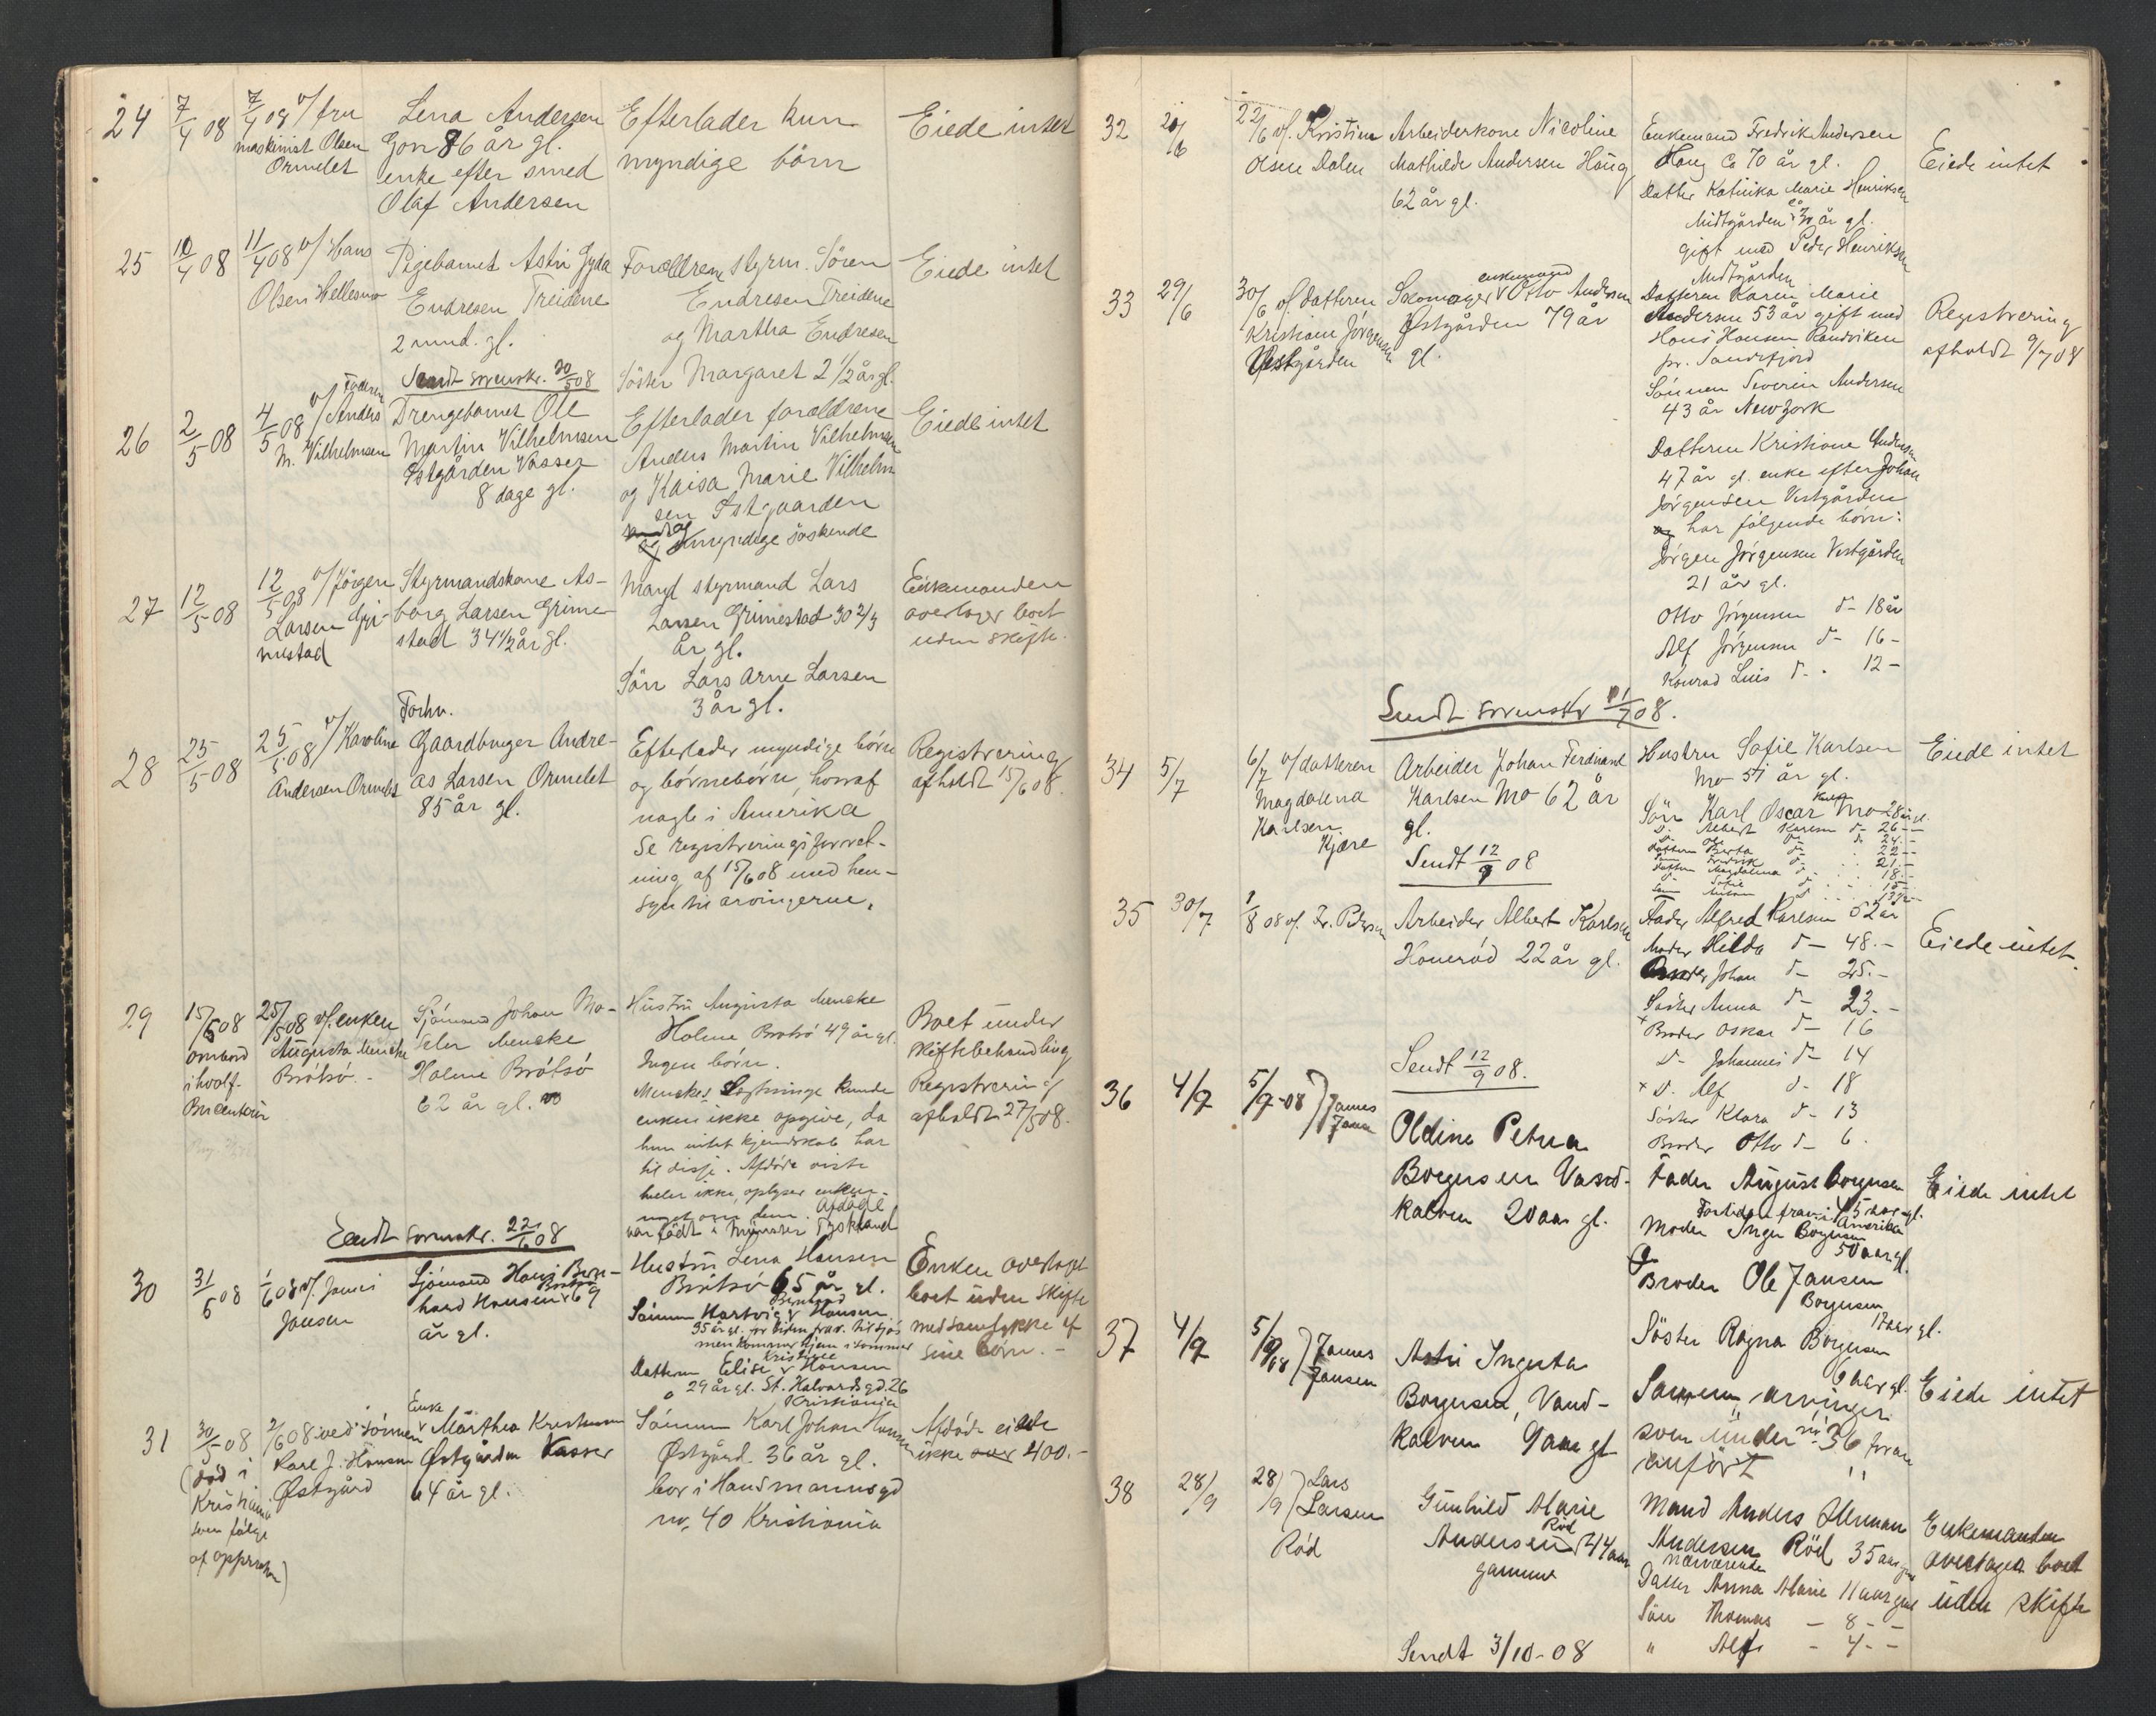 24
7/4 08
7/4 08 v/ fru
maskinist Olsen
Ormelet
Lena Andersen
Gon 86 år gl.
enke efter smed
Olaf Andersen
Efterlader kun
myndige börn
Eiede intet
25
10/4 08
11/4 08 v/ Hans
Olsen Hellesmo
Pigebarnet Astri Gyda
Endresen Treidene
2 mnd. gl.
Sendt sorenskr. 20/5 08
Forældrene styrm. Sören
Endresen Treidene
og Martha Endresen
Söster Margaret 2 1/2 år gl.
Eiede intet
26
2/5 08
4/5 08 v/ Faderen
Anders
M. Vilhelmsen
Drengebarnet Ole
Martin Vilhelmsen
Østgården Vasser
8 dage gl.
Efterlader forældrene
Anders Martin Vilhelmsen
og Kaisa Marie Vilhelm
sen Østgaarden
og umyndige söskende
Eiede intet
27
12/5 08
12/5 08 v/ Jörgen
Larsen Gri-
mestad
Styrmandskone As-
borg Larsen Grime-
stad 34 1/2 år gl.
Mand styrmand Lars
Larsen Grimestad 30 2/3
år gl.
Sön Lars Arne Larsen
3 år gl.
Enkemanden
overtager boet
uden skifte.
28
25/5 08
25/5 08 v/ Karoline
Andersen Ormelet
Forhv.
Gaardbruger Andre-
as Larsen Ormelet
85 år gl.
Efterlader myndige börn
og börnebörn, hvoraf
nogle i Amerika
Se registreringsforret-
ning af 15/6 08 med hen-
syn til arvingerne.
Registrering
afholdt 15/6 08.
29
15/5 08
ombord
i hvalf.
Bucentaur
25/5 08 v/ enken
Augusta Mencke
Brötsö.
Sjömand Johan Mo-
Mencke
Holme Brötsö
62 år gl.
Hustru Augusta Mencke
Holme Brötsö 49 år gl.
Ingen börn.
Menckes Slegtninge kunde
enken ikke opgive, da
hun intet kjendskab har
til disse. Afdöde viste
heller ikke, oplyser enken
noget om dem. Afdöde
var födt i Tyskland
Boet under
skiftebehandling
Registrering
afholdt 27/5 08.
Sendt sorenskr. 22/6 08
30
31/5 08
1/6 08 v/ James
Jansen
Sjömand Hans Bern-
hard Hansen Brötsö 69
år gl.
Hustru Lena Hansen
Brötsö 65 år gl.
Sönnen Hartvig Bernhard Hansen
35 år gl. for tiden frav. til sjös
men kommer hjem i sommer
Datteren Elise Kristine Hansen
29 år gl. St. Halvards gd. 26
Kristiania
Enken overtaget
boet uden skifte
med samtykke af
sine börn.
31
30/5 08
(död i
Kristiania
som fölge
af oppration)
2/6 08 ved sönnen
Karl J. Hansen
Østgård
Enke
Marthea Kristensen
Østgården Vasser
64 år gl.
Sönnen Karl Johan Hansen
Østgård. 36 år gl.
bor i Hausmannsgd
no. 40 Kristiania
Afdöde eiede
ikke over 400.-
32
20/6
22/6 v/ Kristine
Olsen Dalen
Arbeiderkone Nicoline
Mathilde Andersen Haug
62 år gl.
Enkemand Fredrik Andersen
Haug ca 70 år gl.
Datter Katinka Marie Henriksen
Midtgården ca 30 år gl.
gift med Peder Henriksen
Midtgården
Eiede intet
33
29/6
30/6 v/ datteren
Kristiane Jörgensen
Vestgården
Skomager enkemand Otto Andersen
Østgården 79 år
gl.
Datteren Karen Marie
Andersen 53 år gift med
Hans Hansen Randviken
pr. Sandefjord
Sönnen Severin Andersen
43 år New York
Datteren Kristiane Andersen
47 år gl. enke efter Johan
Jörgensen Vestgården
og har fölgende börn:
Jörgen Jörgensen Vestgården
21 år gl.
Otto Jörgensen d- 18 år
Alf Jörgensen d- 16 -
Konrad Luis d- 12 -
Registrering
afholdt 9/7 08
Sendt sorenskr 11/7 08.
34
5/7
6/7 v/ datteren
Magdalena
Karlsen
Kjære
Arbeider Johan Ferdinand
Karlsen Mo 62 år
gl.
Sendt 12/9 08
Hustru Sofie Karlsen
Mo 51 år gl.
Sön Karl Oscar Mo 28 år gl.
d. Albert Karlsen d- 26 -
24 -
Datteren Berta d- 22 -
Fredrik d- 21 -
Datteren Magdalena d- 18 -
Sofie d- 15 -
Anton
Eiede intet
35
30/7
1/8 08 v/ Fr. Pedersen
Arbeider Albert Karlsen
Honeröd 22 år gl.
Fader Alfred Karlsen 52 år
Moder Hilda d- 48.-
Broder Johan d- 25.-
Söster Anna d- 23.-
Broder Oskar d- 16
d- Johannes d- 14
d. Alf d- 18
Söster Klara d- 13
Broder Otto d- 6.
Eiede intet.
Sendt 12/9 08.
36
4/9
5/9-08 } James
Jansen
Oldine Petrea
Borgersen Vand-
kalven 20 aar gl.
Fader August Borgersen
45 aar gl.
Fortiden frav. i Amerika
Moder Inga Borgersen
50 aar gl.
Broder Ole Jansen
Borgersen
17 aar gl.
Söster Ragna Borgersen
6 aar gl.
Eiede intet
37
4/9
5/9 08 } James
Jansen
Astri Ingerta
Borgersen, Vand-
kalven 9 aar gl
Samme arvinger
som under nr. 36 foran
anfört
Eiede intet
38
28/9
28/9 } Lars
Larsen
Röd
Gunhild Marie
Andersen Röd 44 aar
gammel
Mand Anders Herman
Andersen Röd 35 aar gml
nærværende
Datter Anna Marie 11 aar gml
Sön Thomas - 8 - -
" Alf - 4 - -
Enkemanden
overtager boet
uden skifte
Sendt 3/10-08